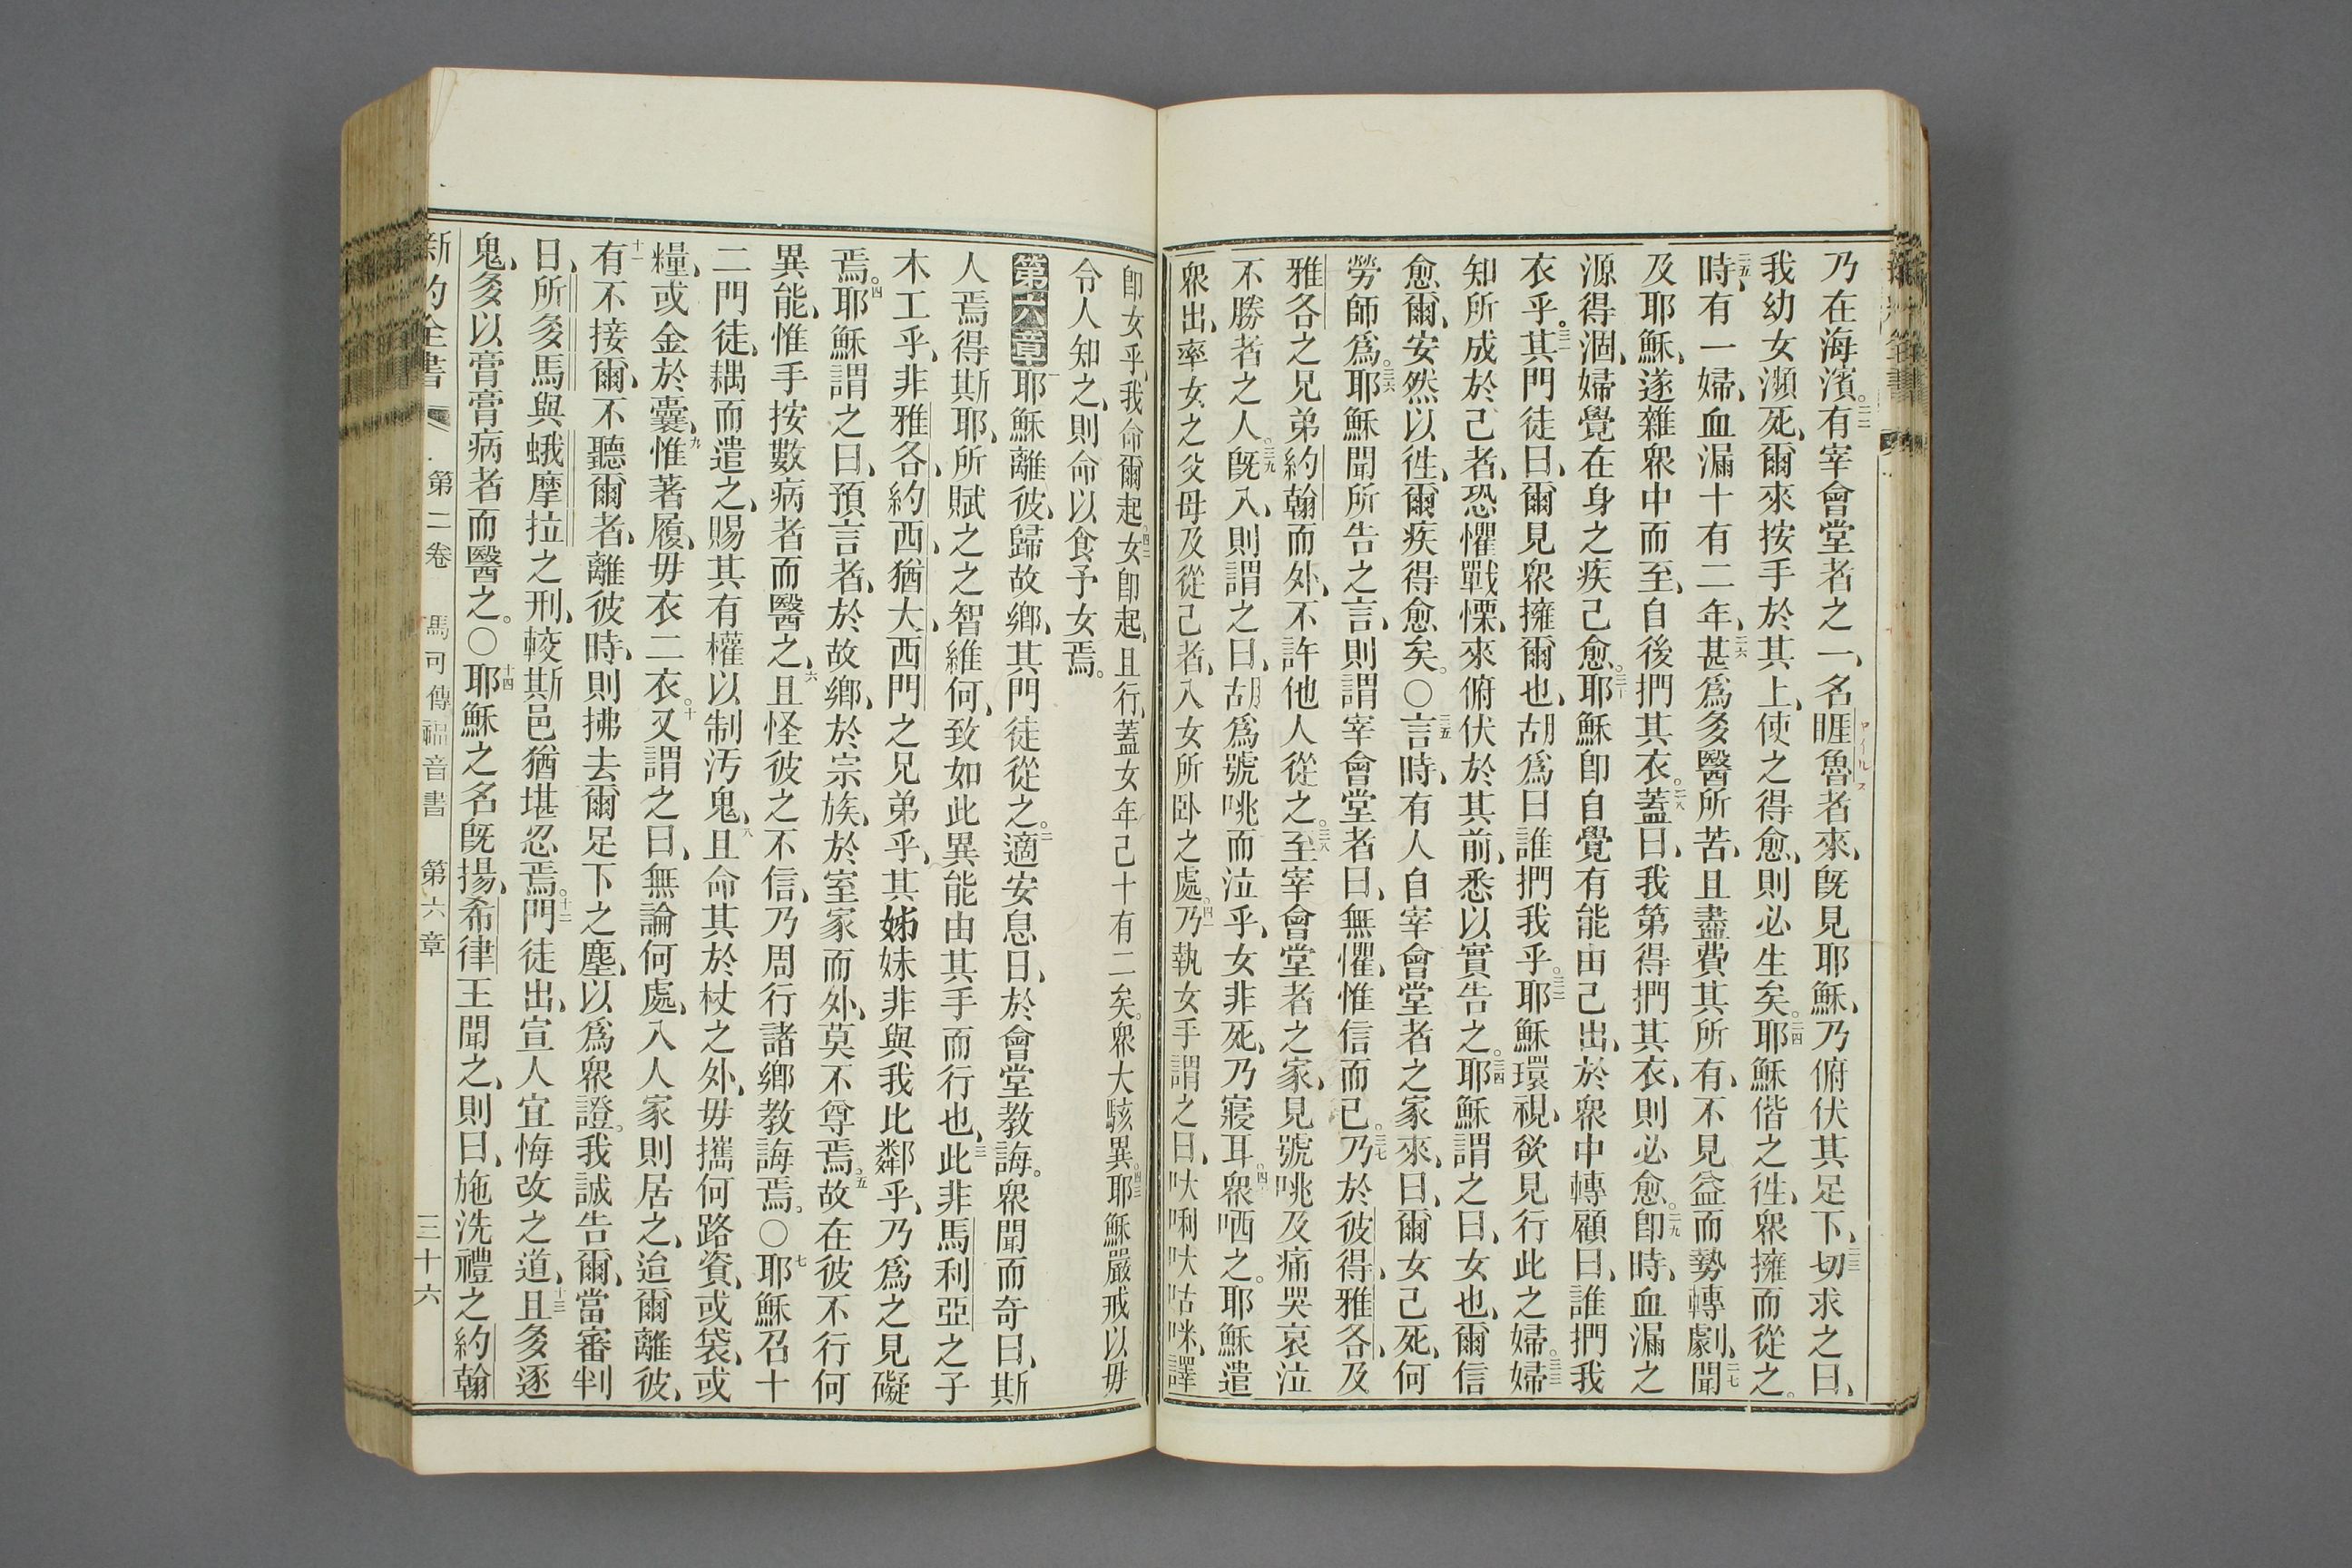 乃在海濱。二二有宰會堂者之一、名睚魯者來、旣見耶穌、乃俯伏其足下、二三切求之曰、
アイルス
我幼女瀕死、爾來按手於其上、使之得愈、則必生矣。二四耶穌偕之徃、衆擁而從之。
二五時、有一婦、血漏十有二年、二六甚爲多醫所苦、且盡費其所有、不見益而勢轉劇、二七聞
及耶穌、遂雜衆中而至、自後捫其衣。二八蓋曰、我第得捫其衣、則必愈。二九卽時、血漏之
源得涸、婦覺在身之疾已愈。三十耶穌卽自覺有能由己出、於衆中轉顧曰、誰捫我
衣乎。三一其門徒曰、爾見衆擁爾也、胡爲曰誰捫我乎。三二耶穌環視、欲見行此之婦。三三婦
知所成於己者、恐懼戰慄、來俯伏於其前、悉以實告之。三四耶穌謂之曰、女也、爾信
愈爾、安然以徃、爾疾得愈矣。〇三五言時、有人自宰會堂者之家來、曰、爾女已死、何
勞師爲。三六耶穌聞所告之言、則謂宰會堂者曰、無懼、惟信而已。三七乃於彼得、雅各、及
雅各之兄弟約翰而外、不許他人從之。三八至宰會堂者之家、見號咷及痛哭哀泣
不勝者之人。三九旣入、則謂之曰、胡爲號咷而泣乎、女非死、乃寢耳。四十衆哂之。耶穌遣
衆出、率女之父母及從己者、入女所卧之處。四一乃執女手謂之曰、呔唎呔咕咪、譯
卽女乎、我命爾起。四二女卽起、且行、蓋女年已十有二矣。衆大駭異。四三耶穌嚴戒以毋
令人知之、則命以食予女焉。
第六章一耶穌離彼、歸故鄉、其門徒從之。二適安息日、於會堂教誨。衆聞而奇曰、斯
人焉得斯耶、所賦之之智維何、致如此異能由其手而行也、三此非馬利亞之子
木工乎、非雅各、約西、猶大、西門之兄弟乎、其姊妹非與我比鄰乎、乃爲之見礙
焉。四耶穌謂之曰、預言者、於故鄉、於宗族、於室家而外、莫不尊焉。五故在彼不行何
異能、惟手按數病者而醫之、六且怪彼之不信、乃周行諸鄉教誨焉。〇七耶穌召十
二門徒、耦而遣之、賜其有權以制汚鬼、八且命其於杖之外、毋攜何路資、或袋、或
糧、或金於囊、九惟著履、毋衣二衣。十又謂之曰、無論何處、入人家則居之、迨爾離彼、
十一有不接爾、不聽爾者、離彼時、則拂去爾足下之塵、以爲衆證。我誠告爾、當審判
日、所多馬與蛾摩拉之刑、較斯邑猶堪忍焉。十二門徒出、宣人宜悔改之道、十三且多逐
鬼、多以膏膏病者而醫之。〇十四耶穌之名旣揚、希律王聞之、則曰、施洗禮之約翰
新約全書 第二卷 馬可傳福音書 第六章 三十六